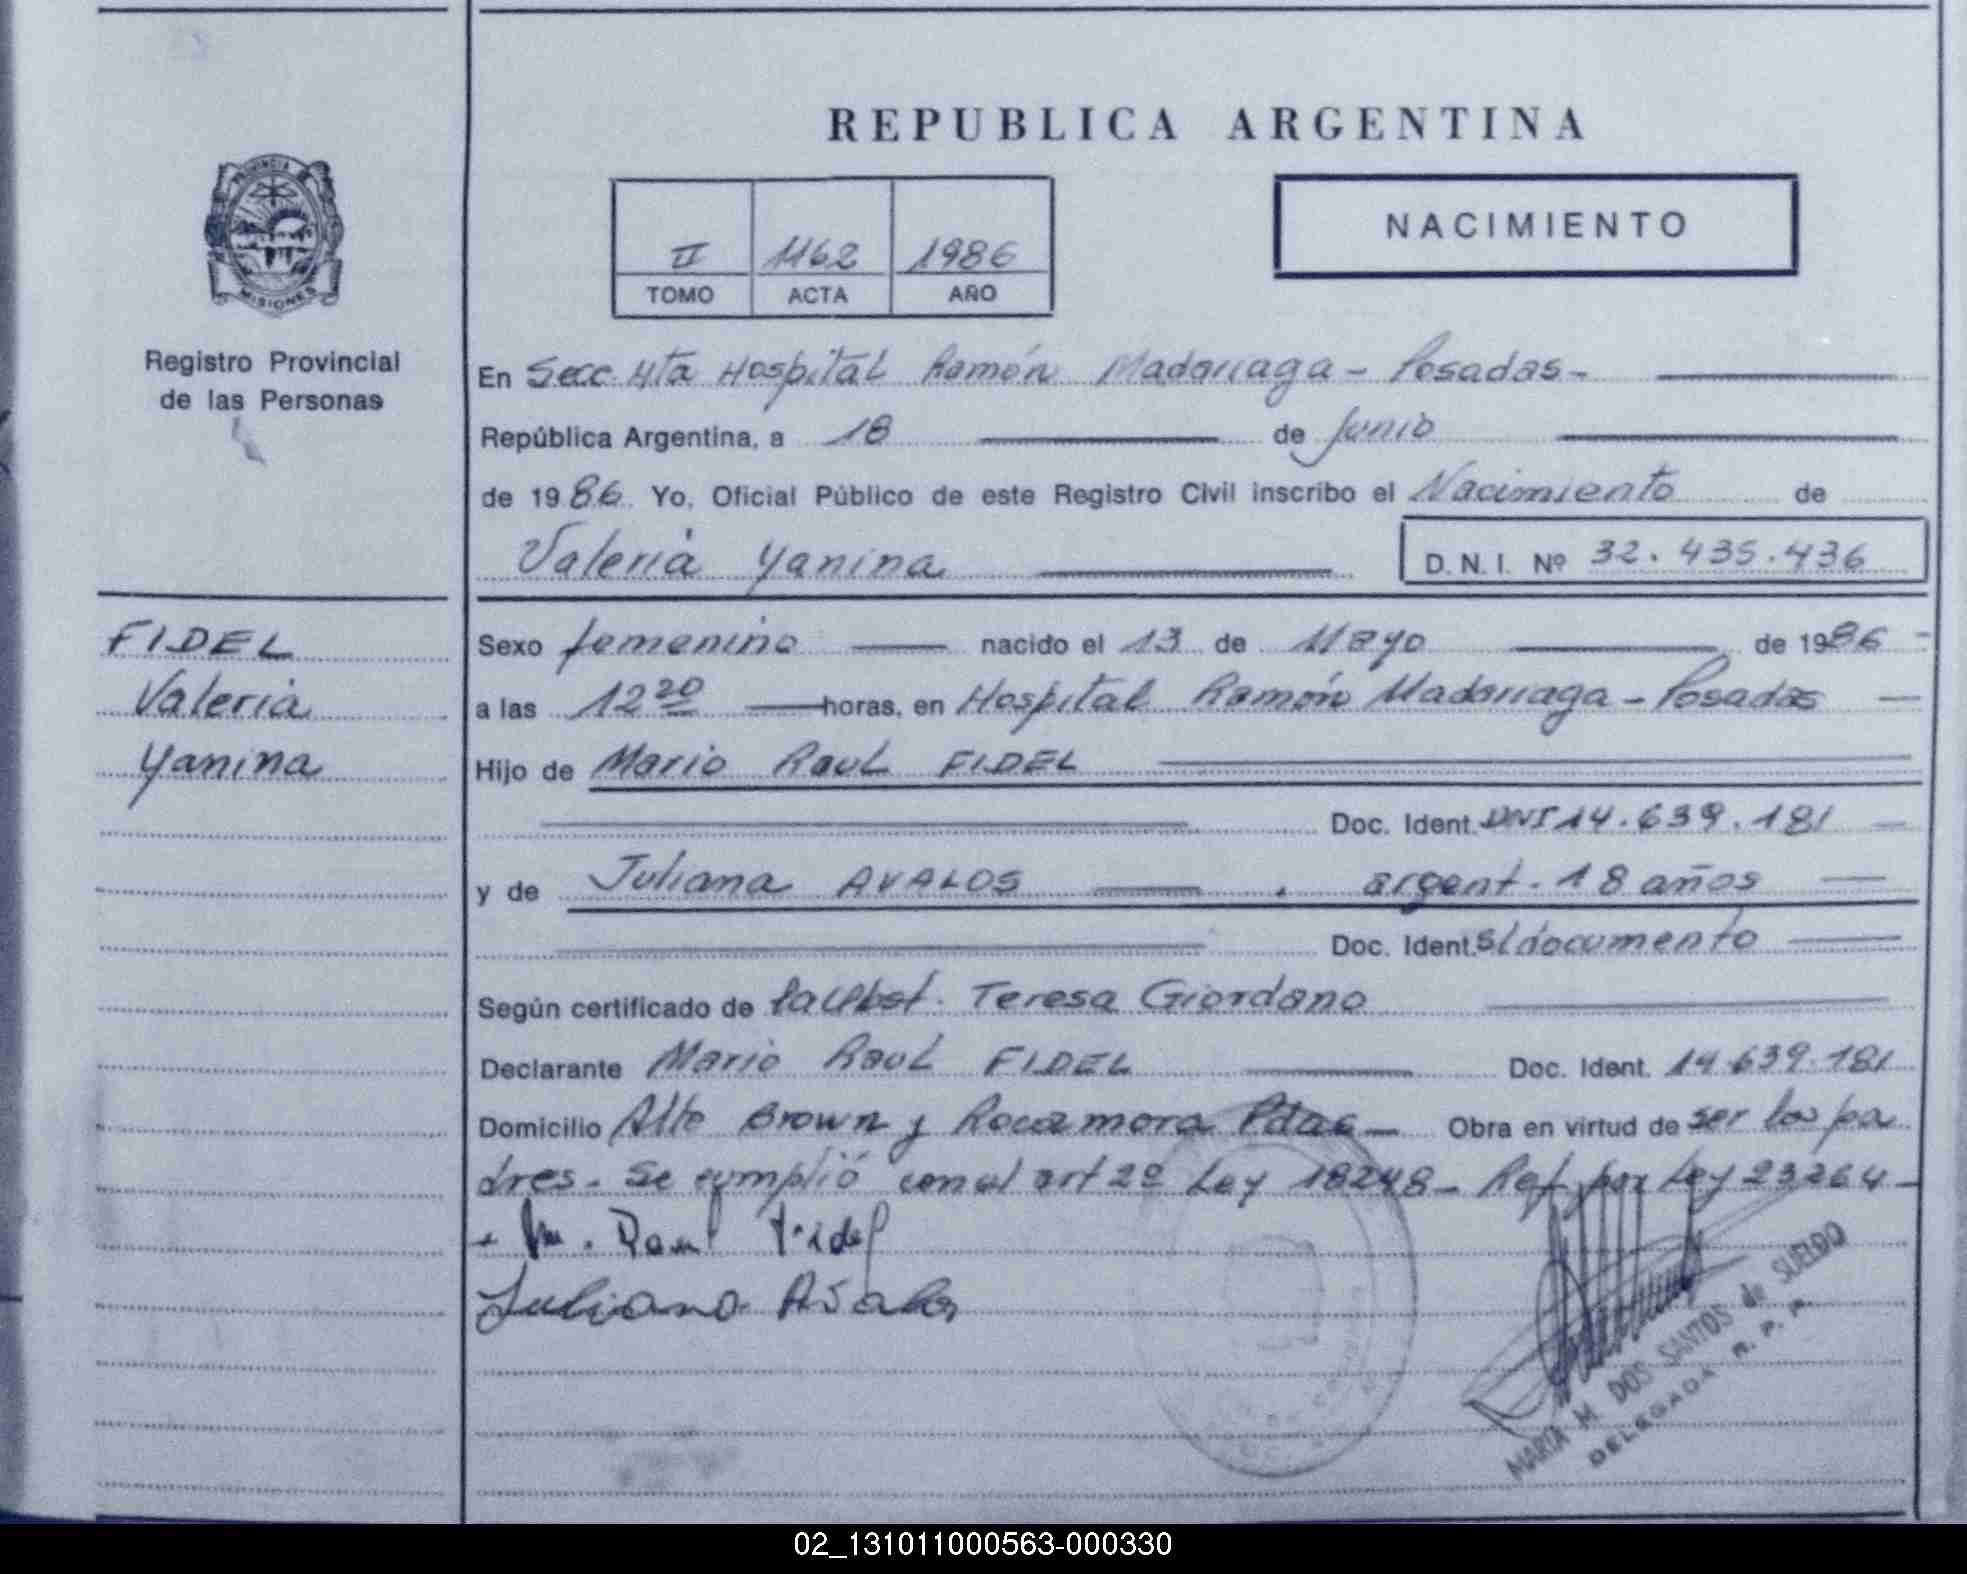 REPUBLICA ARGENTINA
PROVINCIA DE
MISIONES
II 1162 1986
TOMO ACTA AÑO
NACIMIENTO
Registro Provincial
de las Personas
En Secc 4ta Hospital Ramón Madariaga - Posadas -
República Argentina, a 18 de Junio
de 1986. Yo, Oficial Público de este Registro Civil inscribo el Nacimiento de
Valeria Yanina D.N.I. Nº 32.435.436
FIDEL
Valeria
Yanina
Sexo femenino nacido el 13 de Mayo de 1986 -
a las 12 20 horas, en Hospital Ramón Madariaga - Posadas
Hijo de Mario Raul FIDEL
Doc. Ident. DNI 14.639.181
y de Juliana AVALOS . argent. 18 años
Doc. Ident. s/documento
Según certificado de Teresa Giordano
Declarante Mario Raul FIDEL Doc. Ident. 14.639.181
Domicilio Alte Brown y Rocamora Pdas - Obra en virtud de ser los pa
dres. Se cumplió con el art 2º Ley 18248 - Ref. por Ley 23264 -
M. Raul Fidel
Juliana Avalos
MARTA M. DOS SANTOS de SUELDO
DELEGADA R. P. P.
02_131011000563-000330